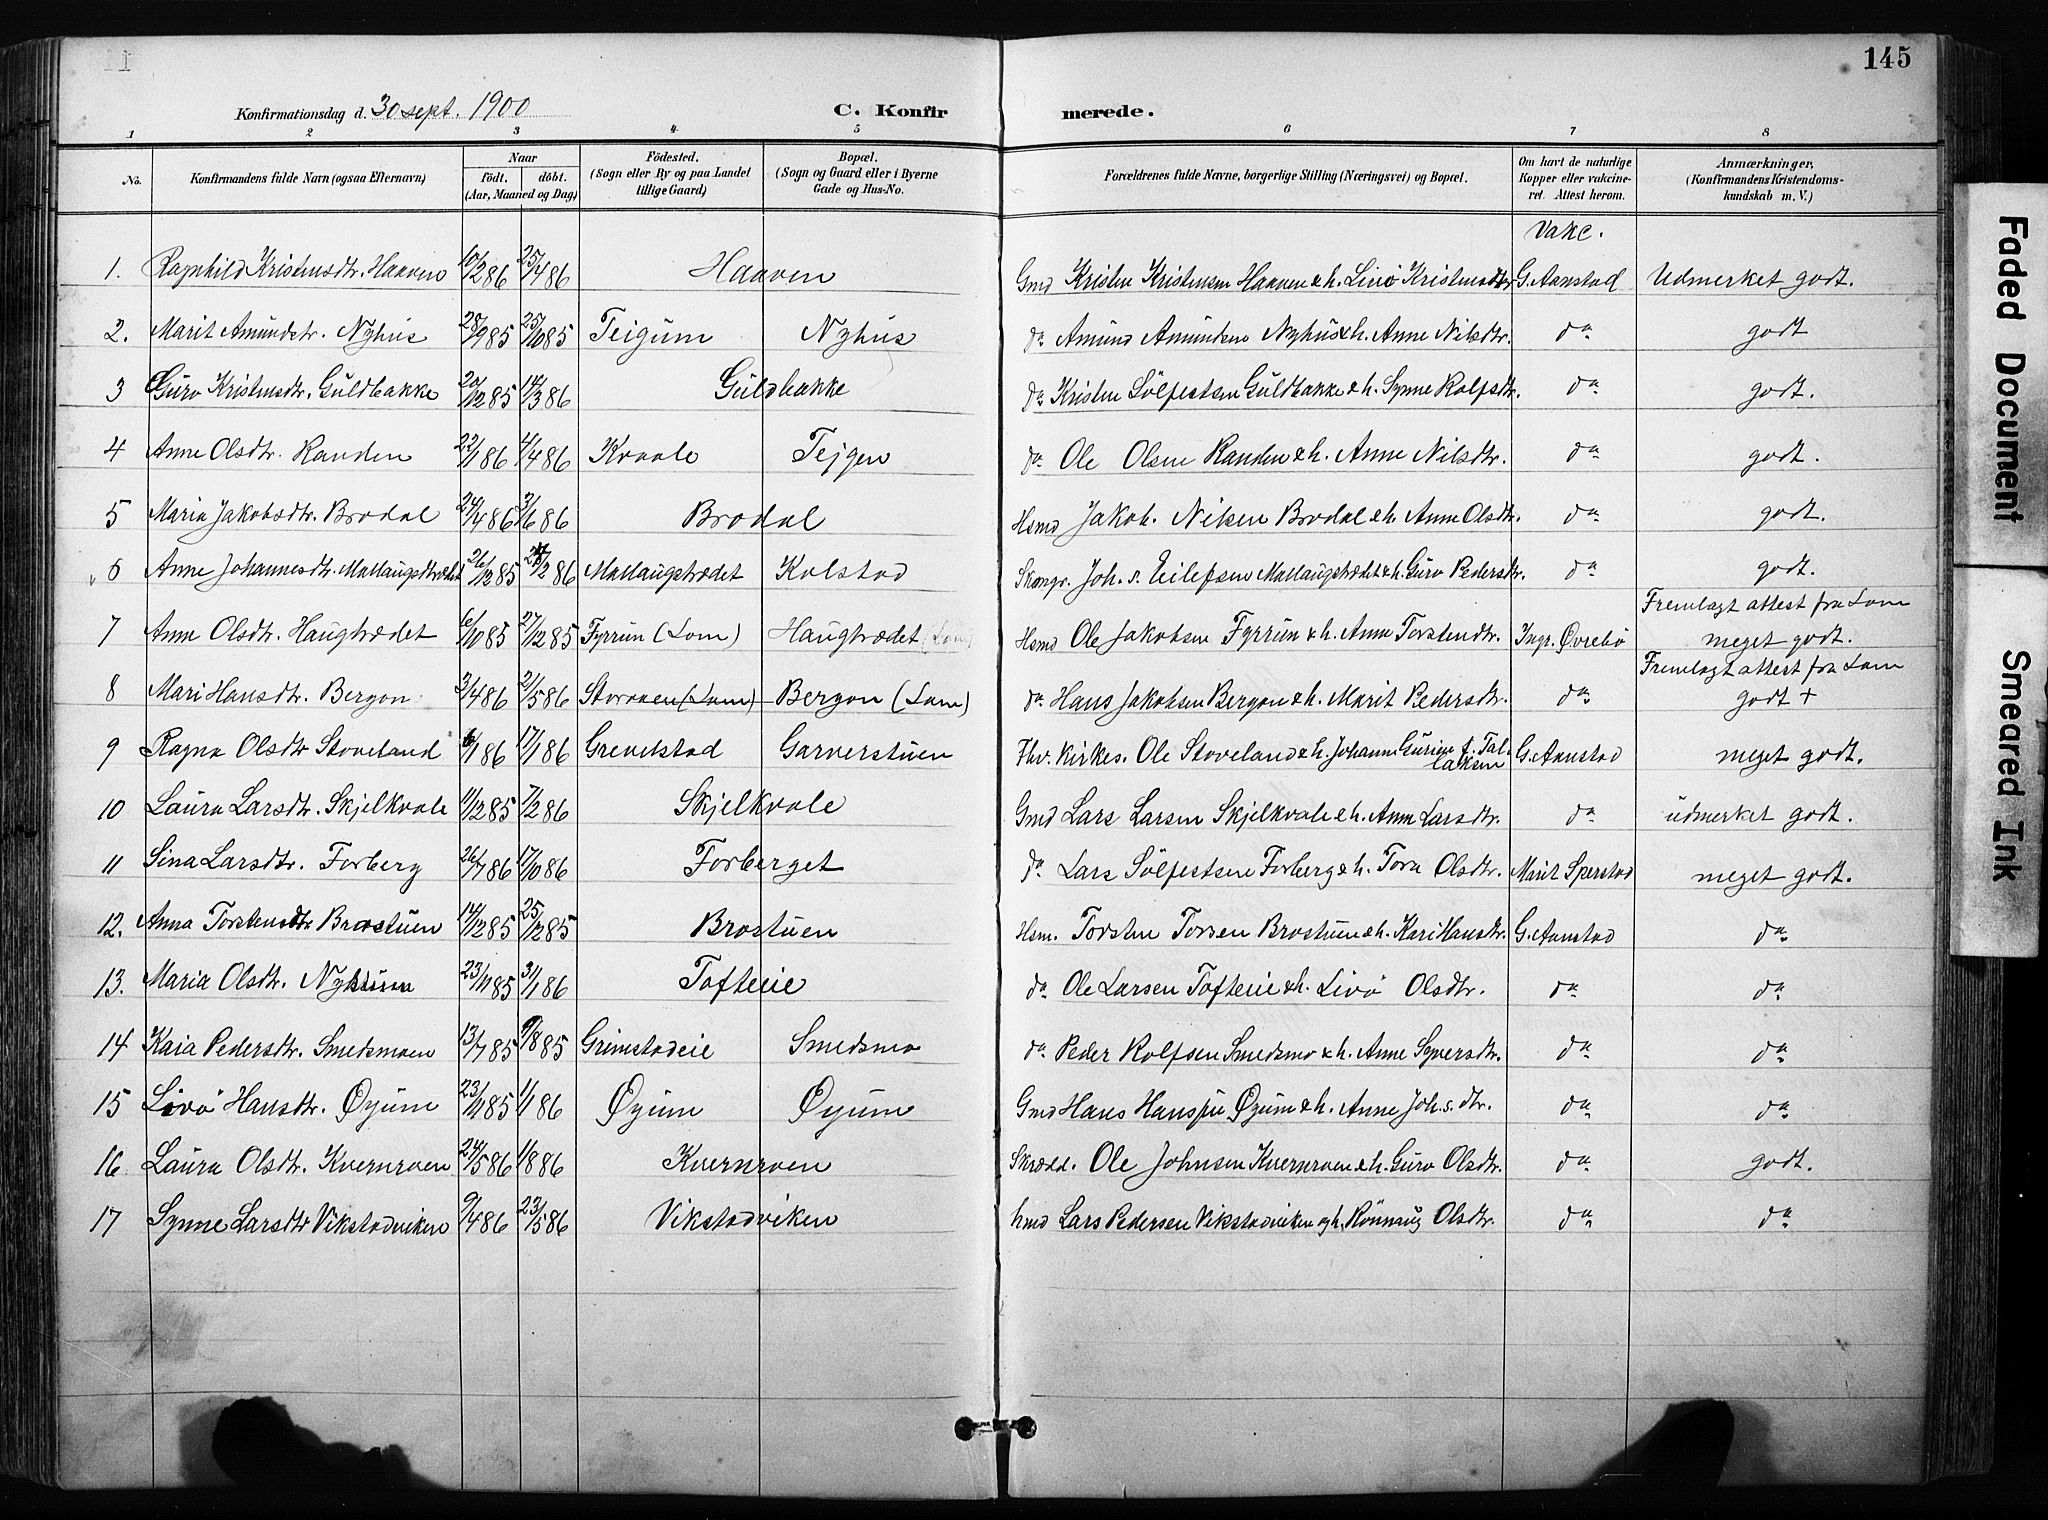 145
Konfirmationsdag d. 30 sept. 1900
C. Konfirmerede.
1 2 3 4 5 6 7 8
No.
Konfirmandens fulde Navn (ogsaa Efternavn)
Naar
födt. döbt.
(Aar, Maaned og Dag)
Födested.
(Sogn eller By og paa Landet
tillige Gaard)
Bopæl.
(Sogn og Gaard eller i Byerne
Gade og Hus-No.
Forældrenes fulde Navne, borgerlige Stilling (Næringsvei) og Bopæl.
Om havt de naturlige
Kopper eller vakcine-
ret. Attest herom.
Anmærkninger.
(Konfirmandens Kristendoms-
kundskab m. V.)
Vakc.
1. Ragnhild Kristensdtr. Haaven 10/2 86 25/4 86 Haaven Gmd Kristen Kristensen Haaven & h. Livö Kristensdtr G. Aanstad Udmerket godt.
2. Marit Amundsdtr. Nyhus 28/9 85 25/10 85 Teigum Nyhus do Amund Amundsen Nyhus & h. Anne Nilsdtr. do godt
3 Guro Kristensdtr. Guldbakke 20/12 85 14/3 86 Guldbakke do Kristen Sölfestsen Guldbakke & h. Synne Rolfsdtr. do godt.
4 Anne Olsdtr. Randen 22/1 86 4/4 86 Kvaale Tejgen do Ole Olsen Randen & h. Anne Nilsdtr. do godt.
5 Maria Jakobsdtr. Brodal 24/4 86 3/6 86 Brodal Hsmd Jakob Nilsen Brodal & h. Anne Olsdtr. do godt.
6 Anne Johannesdtr. Mallaugstrædet 26/12 85 /2 86 Mallaugstrædet Kolstad Joh.s. Eilefsen Mallaugstrædet & h. Guro Pedersdtr. do godt.
7 Anne Olsdtr. Haugtrædet 6/10 85 27/12 85 Fyrrun (Lom) Haugtrædet (Lom) Hsmd Ole Jakobsen Fyrrun & h. Anne Torstendtr. Ingr. Øvrebö Fremlagt attest fra Lom
meget godt.
8 Mari Hansdtr. Bergon 3/4 86 2/5 86 Storoen (Lom) Bergon (Lom) do Hans Jakobsen Bergon & h. Marit Pedersdtr. do Fremlagt attest fra Lom
godt +
9 Ragna Olsdtr Stoveland 6/1 86 17/1 86 Grevelstad Garverstuen Fhv. Kirkes. Ole Stoveland & h. Johanne Gurine f. Tal-
laksen G. Aanstad meget godt.
10 Laura Larsdtr. Skjelkvale 11/12 85 7/2 86 Skjelkvale Gmd Lars Larsen Skjelkvale & h. Anne Larsdtr. do udmerket godt.
11 Sina Larsdtr. Forberg 26/7 86 17/10 86 Forberget do Lars Sölfestsen Forberg & h. Tora Olsdtr. Marit Sperstad meget godt.
12. Anna Torstensdtr Brostuen 14/12 85 25/12 85 Brostuen Hsm. Torsten Torsen Brostuen & h. Kari Hansdtr. G. Aanstad do
13. Maria Olsdtr. 23/11 85 3/1 86 Tofteeie do Ole Larsen Tofteeie & h. Livö Olsdtr. do do
14 Kaia Pedersdtr. Smedsmoen 13/7 85 9/8 85 Grimstadeie Smedsmo do Peder Rolfsen Smedsmo & h. Anne Syversdtr. do do
15 Livö Hansdtr. Øyum 23/11 85 1/1 86 Øyum Øyum Gmd Hans Øyum & h. Anne Joh.s.dtr. do do
16 Laura Olsdtr. Kvernroen 24/5 86 1/8 86 Kvernroen Skrædd. Ole Johnsen Kvernroen & h. Guro Olsdtr. do godt.
17 Synne Larsdtr Vikstadviken 9/4 86 23/5 86 Vikstadviken hmd Lars Pedersen Vikstadviken og h. Rönnaug Olsdtr. do do
Faded Document
Smeared Ink